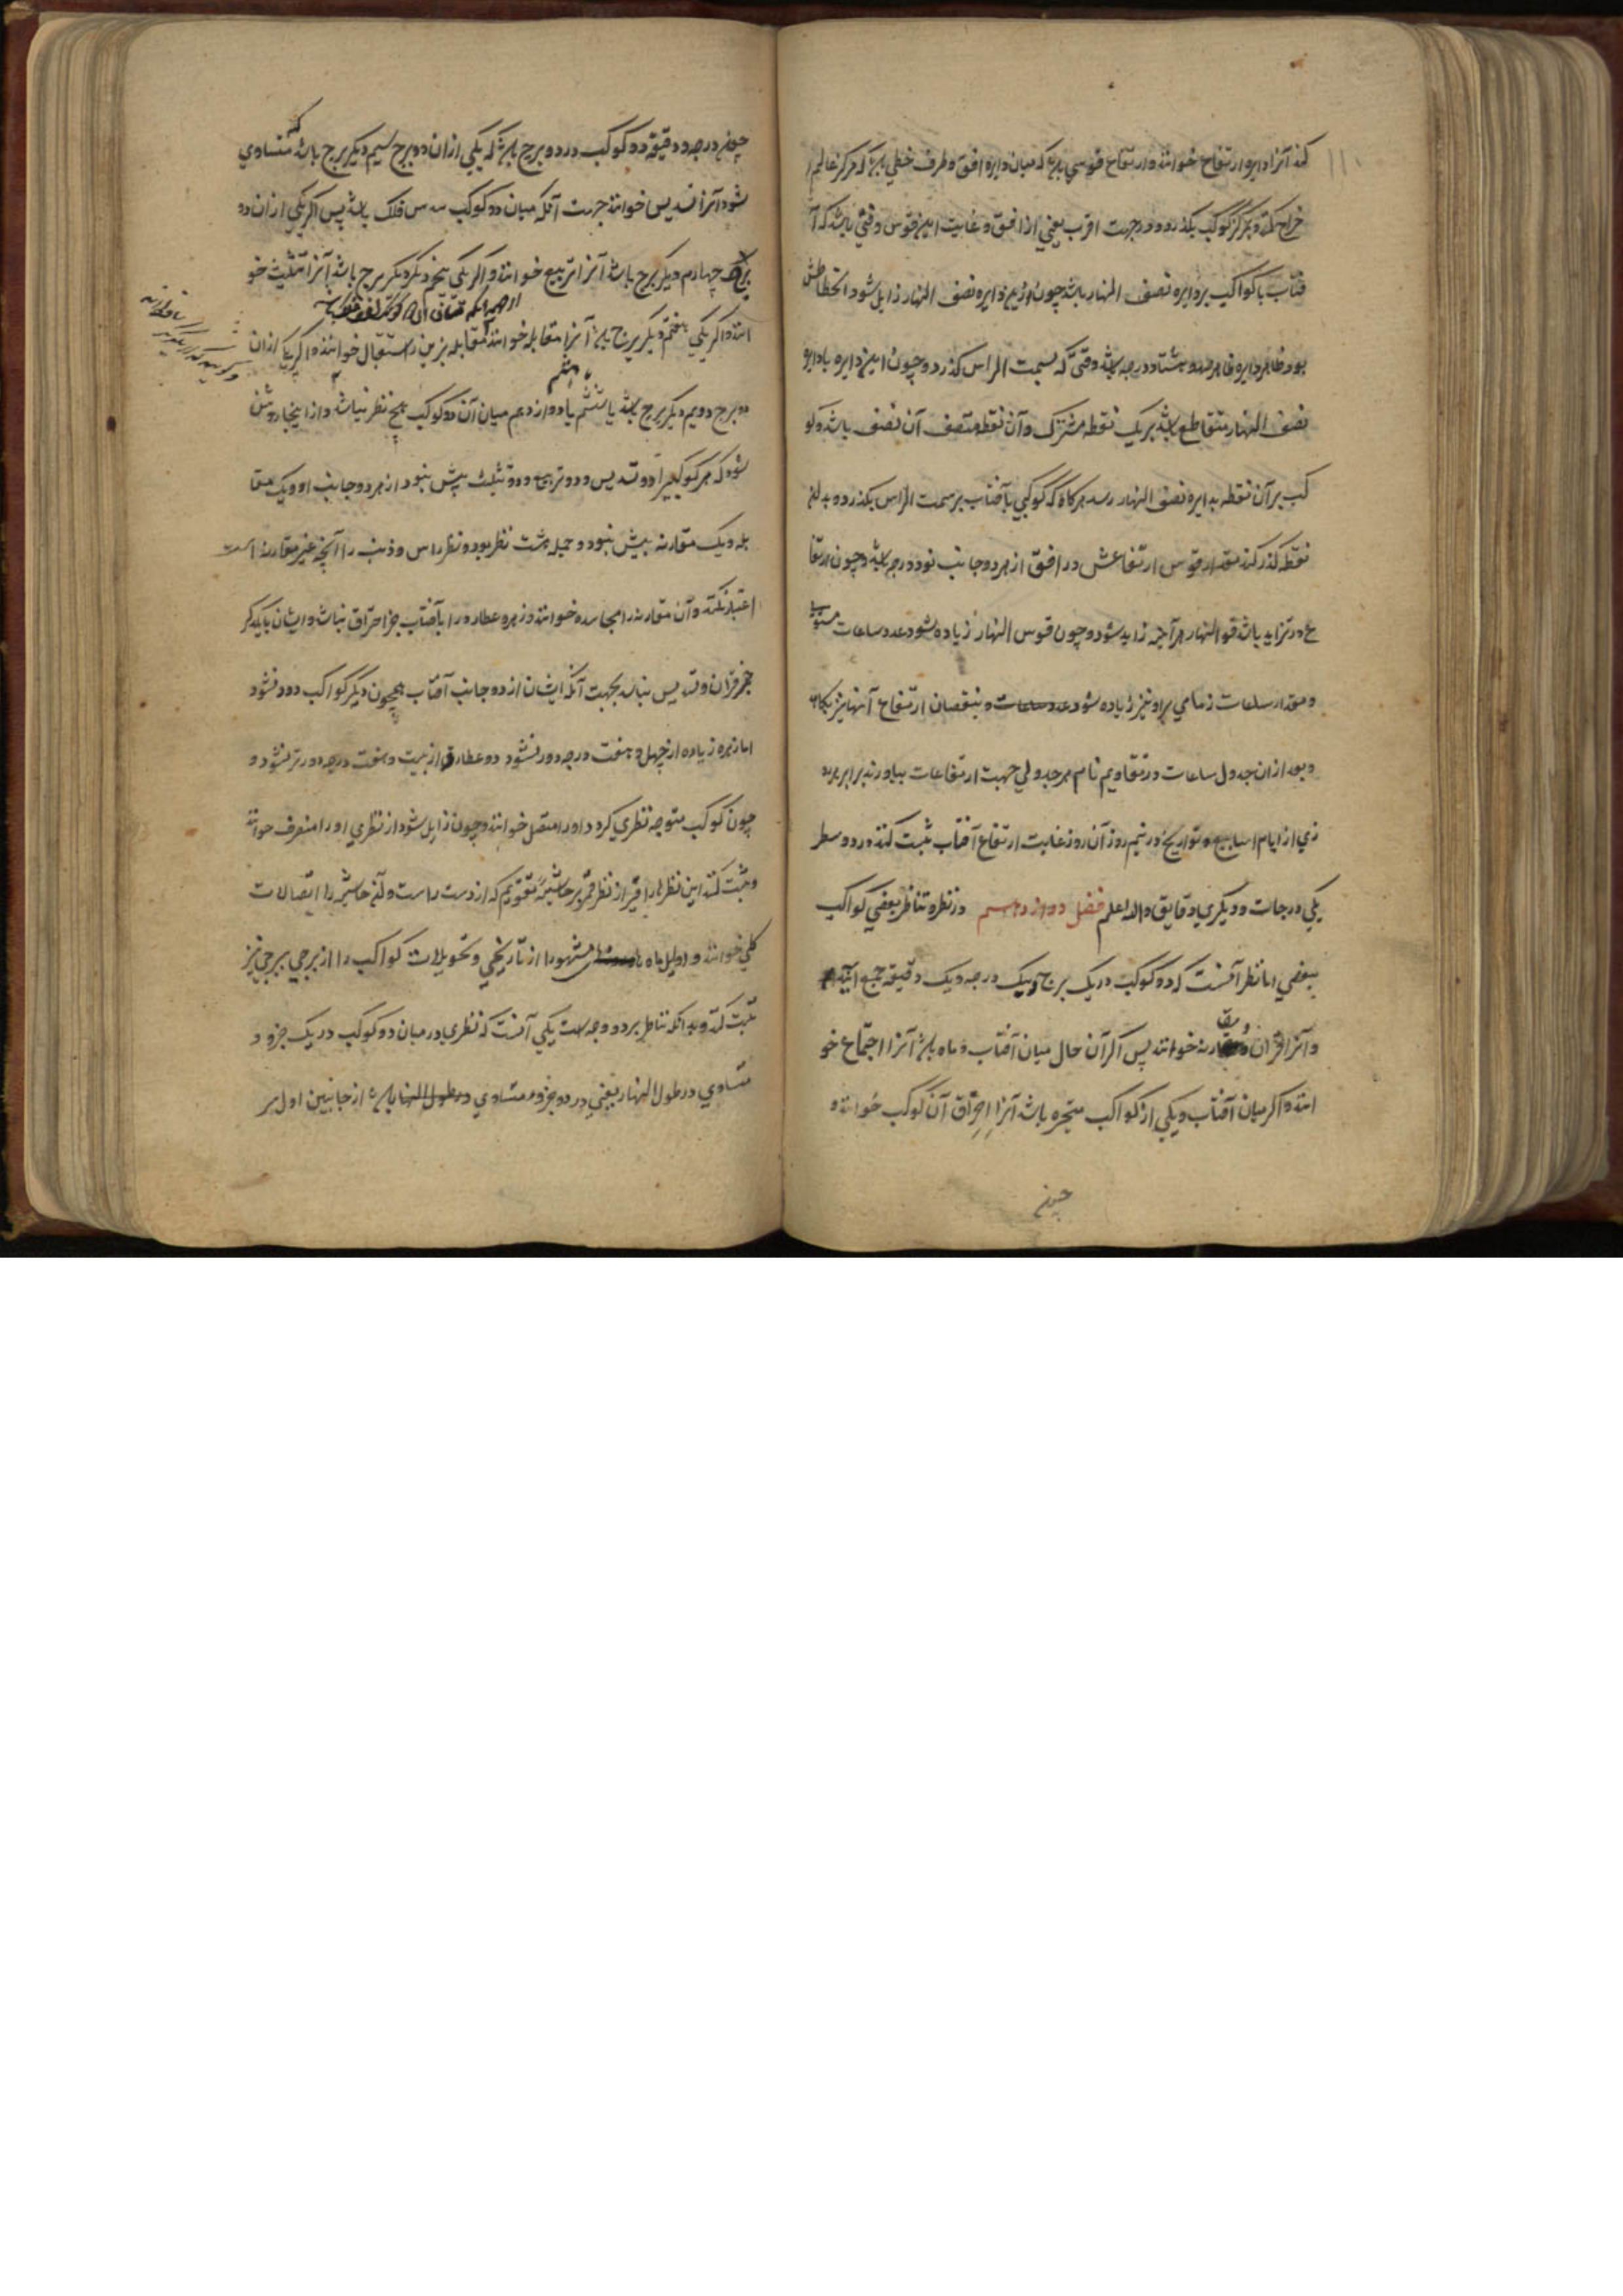 کند آنرا دایره ارتفاع خوانند و ارتفاع قوسی باشد که میان دایره افق و طرف خطی باشد که مرکز عالم ا
خراج کنند و بمرکز کوکب بگذرد و در جهت اقرب یعنی از افق و غایت این قوس وقتی باشد که آ
فتاب یا کواکب بر دایره نصف النهار باشد چون ازین دایره نصف النهار زایل شود انحطاطش
بود دایره صد و هشتاد درجه باشد وقتی که بسمت الراس کذرد و چون این دایره با دایره
نصف النهار متقاطع باشد بر یک نقطه مشترک و آن نقطه منصف آن نصف باشد و کو
کب بر آن نقطه بدایره نصف النهار رسد هر کاه که کوکبی یا آفتاب بر سمت الراس بگذرد و بدین
نقطه کذر کند مقدار قوس ارتفاعش در افق از هر دو جانب نود درجه باشد و چون ارتفا
ع در تزاید باشد قوس النهار هر آینه زاید شود و چون قوس النهار زیاده شود عدد ساعات مستوی
و مقدار ساعات زمانی بر او نیز زیاده شود و بنقصان ارتفاع آنها نیز بکاهد
و بعد از آن جدول ساعات در تقاویم نام هر جدولی جهت ارتفاعات بیاورند برابر هر رو
زی از ایام اسابیع و تواریخ در نیم روز آن روز غایت ارتفاع آفتاب ثبت کنند در دو سطر
یکی درجات و دیگری دقایق والله اعلم فصل دوازدهم در نظر و تناظر بعضی کواکب
ببعضی اما نظر آنست که دو کوکب در یک برج و یک درجه و یک دقیقه جمع آیند
و آنرا قران و مقارنه خوانند پس اگر آن حال میان آفتاب و ماه باشد آنرا اجتماع خو
انند و اگر میان آفتاب و یکی از کواکب متحیره باشد آنرا احتراق آن کوکب خوانند و
چون
چون درجه و دقیقه دو کوکب در دو برج باشد که یکی از ان دو برج سیم دیکر برج باشد که متساوی
شود آنرا تسدیس خوانند جهت آنکه میان دو کوکب سدس فلک باشد پس اگر یکی از ان دو
برج چهارم دیکر برج باشد آنرا تربیع خوانند و اگر یکی پنجم دیکر برج باشد آنرا تثلیث خو
انند و اگر یکی هفتم دیکر برج باشد آنرا مقابله خوانند مقابله نیرین را استقبال خوانند و اگر یکی از ان
دو برج دویم دیکر برج باشد یا ششم یا هشتم یا دوازدهم میان آن دو کوکب هیچ نظر نباشد و از اینجا روشن
شود که هر کوکبی را دو تسدیس و دو تربیع و دو تثلیث بیش نبود از هر دو جانب او و یک مقا
بله و یک مقارنه بیش نبود و جمله هشت نظر بود و نظر راس و ذنب را آنچه غیر مقارنه است
اعتبار نکنند و آن مقارنه را مجاسده خوانند و زهره و عطارد را با آفتاب جز احتراق نباشد و ایشان با یکدیگر
جز قران و تسدیس نباشد بجهت آنکه ایشان از دو جانب آفتاب همچون دیگر کواکب دور نشود
اما زهره زیاده از چهل و هفت درجه دور نشود و عطارد از بیست و هفت درجه دورتر نشود و
چون کوکب متوجه نظری کردد او را متصل خوانند و چون زایل شود از نظری او را منصرف خوانند
و ثبت کنند این نظرها را غیر از نظر قمر بر حاشیه تقویم که از دست راست و آن حاشیه را اتصالات
کلی خوانند و اوایل ماه مشهور از تاریخی و تحویلات کواکب را از برجی ببرجی نیز
ثبت کنند و بدانکه تناظر بر دو وجه است یکی آنست که نظری در میان دو کوکب در یک جزو و
متساوی در طول النهار یعنی در دو جزو متساوی در طول النهار باشد از جانبین اول سر